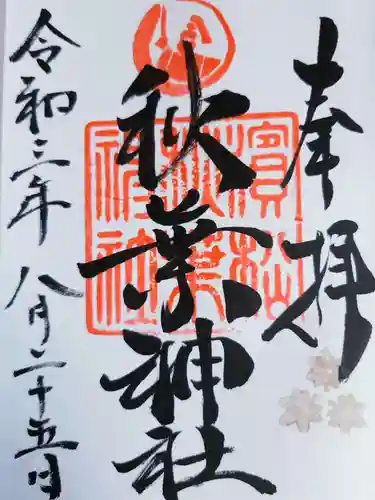 奉拝
秋葉神社
濱松秋葉神社
令和三年八月二十五日